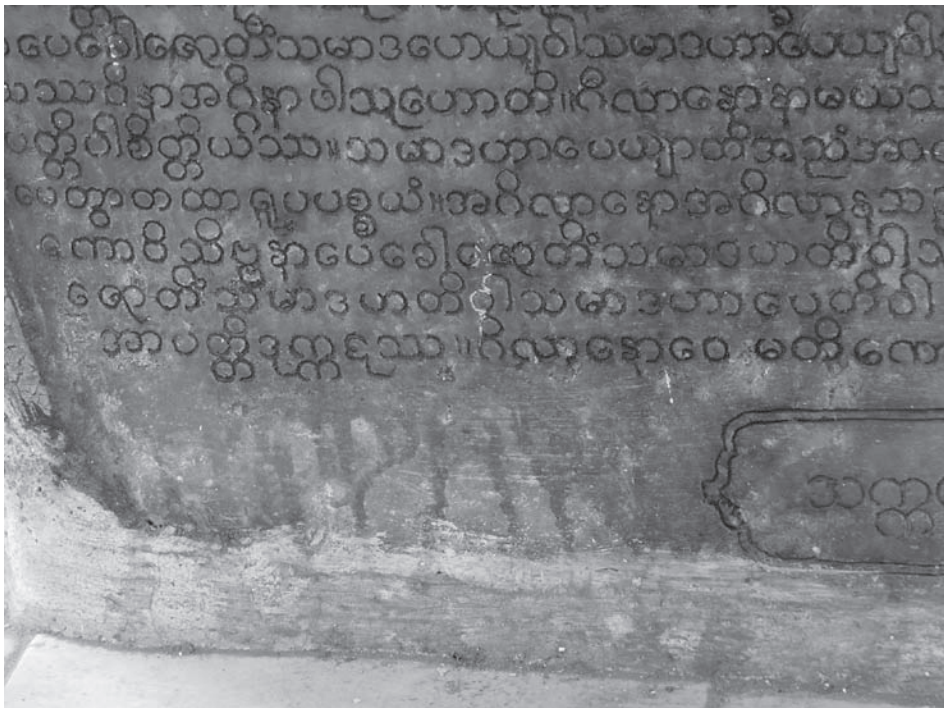 ပေခေါဇောတိံသမာဒဟေယျဝါသမာဒဟာပေယျဝါ
သဿဝိနာအဂ္ဂိနာဖါသုဟောတိ။ဂိလာနောနာမယသ
ပတ္တိပါစိတ္တိယဿ။သမာဒဟာပေယျာတိအညံအာဏ
ပေတွာတထာရူပပစ္စယံ။အဂိလာနောအဂိလာနသည
ကောဝိသိဗ္ဗနာပေခေါဇောတိံသမာဒဟတိဝါသ
ဇောတိံသမာဒဟတိဝါသမာဒဟာပေတိဝါ
အာပတ္တိဒုက္ကဋဿ။ဂိလာနောဝေမတိကော
သက္က